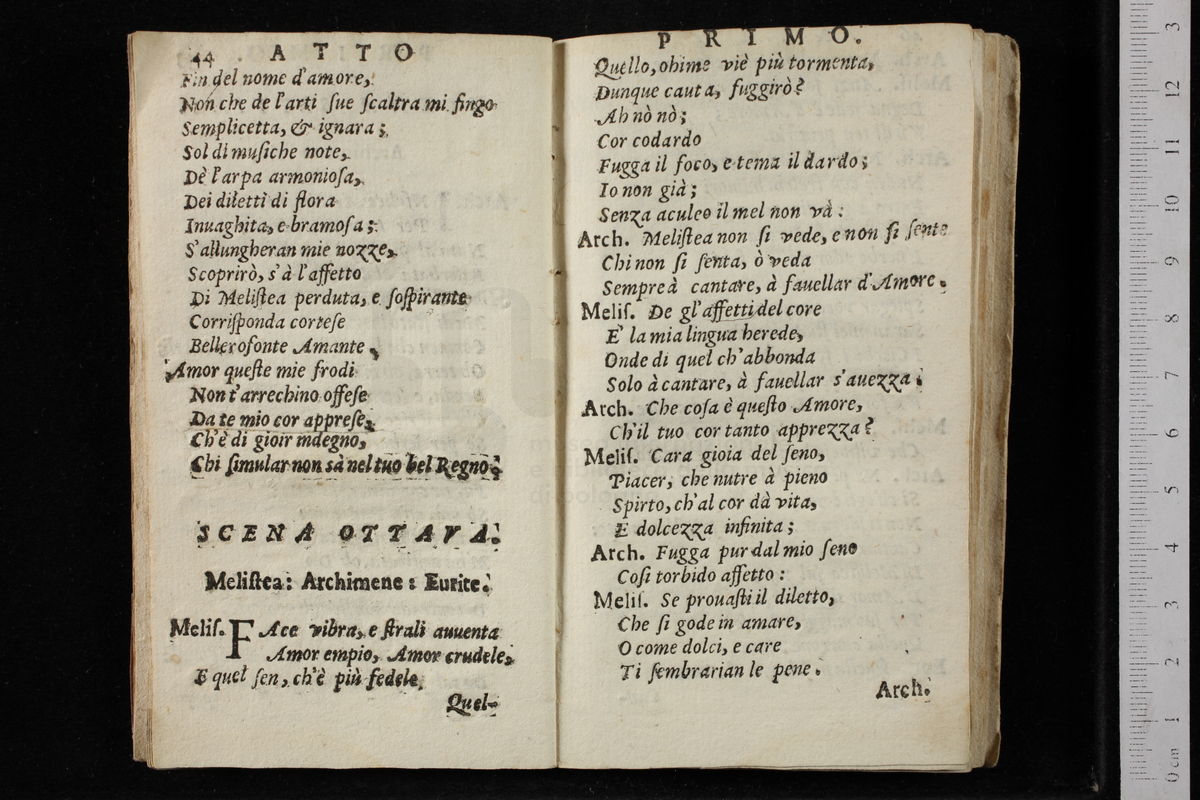 44 . ATTO
Fin del nome d'amore,
Non che de l'arti sue scaltra mi fingo
Semplicetta, & ignara;
Sol di musiche note,
Dè l'arpa armoniosa,
Dei diletti di flora
Inuaghita, e bramosa;
S'allungheran mie nozze,
Scoprirò, s'à l'affetto
Di Melistea perduta, e sospirante
Corrisponda cortese
Bellerofonte Amante,
Amor queste mie frodi
Non t'arrechino offese
Da te mio cor apprese,
Ch'è di gioir indegno,
Chi simular non sà nel tuo bel Regno.
SCENA OTTAVA.
Melistea: Archimene: Eurite.
Melis. FAce vibra, e strali auuenta
Amor empio, Amor crudele,
E quel sen, ch'è più fedele
Quel-
PRIMO.
Quello, ohime viè più tormenta,
Dunque cauta, fuggirò?
Ah nò nò;
Cor codardo
Fugga il foco, e tema il dardo;
Io non già;
Senza aculeo il mel non và:
Arch. Melistea non si vede, e non si sente
Chi non si senta, ò veda
Sempre à cantare, à fauellar d'Amore.
Melis. De gl'affetti del core
E' la mia lingua herede,
Onde di quel ch'abbonda
Solo à cantare, à fauellar s'auezza.
Arch. Che cosa è questo Amore,
Ch'il tuo cor tanto apprezza?
Melis. Cara gioia del seno,
Piacer, che nutre à pieno
Spirto, ch'al cor dà vita,
E dolcezza infinita;
Arch. Fugga pur dal mio seno
Cosi torbido affetto:
Melis. Se prouasti il diletto,
Che si gode in amare,
O come dolci, e care
Ti sembrarian le pene.
Arch.
0 cm 1 2 3 4 5 6 7 8 9 10 11 12 3